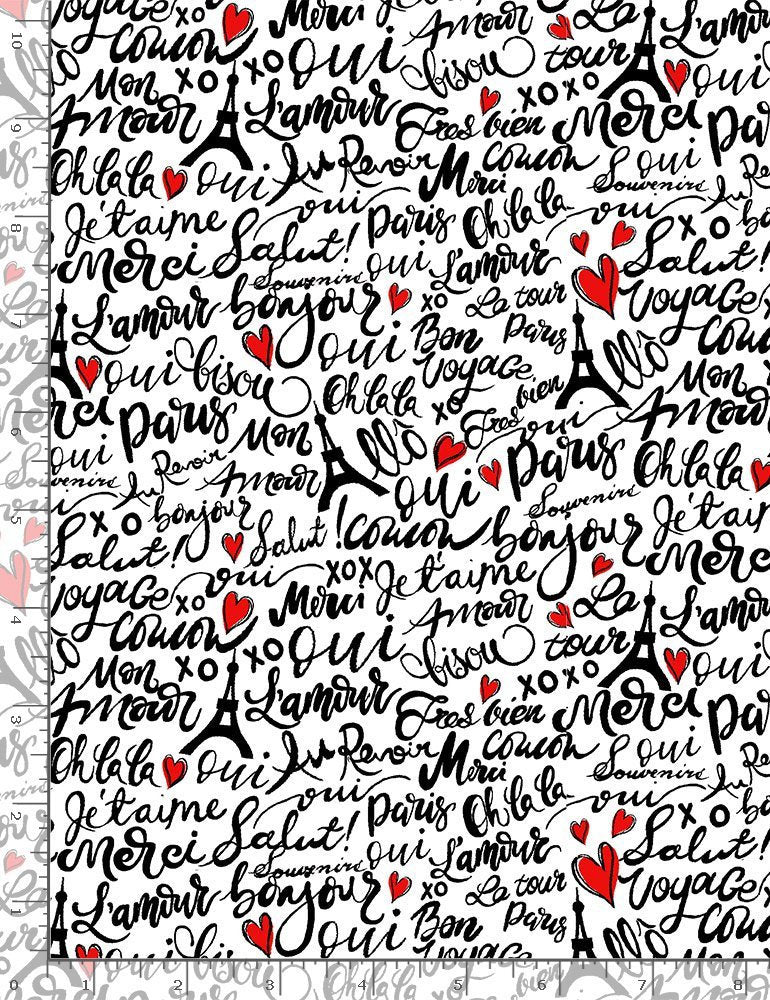 xo Merci Amour Le L'amour
10 Coucou xo oui bisou tour oui
Mon xo xoxo
9 Amour L'amour Tres bien Merci Paris
Oh lala oui Au Revoir Merci Coucou oui Souvenirs Au Revoir
8 Je t'aime oui Paris Oh lala oui xo
Merci Salut! Souvenirs oui L'amour Salut!
7 L'amour bonjour xo Le tour Paris Voyage xo
oui bisou oui Bon Voyage Allô Coucou
Oh lala xo Tres bien Mon
6 Merci Paris Mon Allô oui Amour
oui Au Revoir Amour oui Paris Oh lala
Souvenirs Souvenirs
5 xo bonjour Salut! Coucou bonjour Je t'aime
Salut! xox Je t'aime Merci
4 Voyage xo oui Merci Amour Le L'amour
Coucou xo oui bisou tour oui
Mon xo xoxo
3 Amour L'amour Tres bien Merci Paris
Oh lala oui Au Revoir Merci Coucou oui Souvenirs Au Revoir
2 Je t'aime oui Paris Oh lala oui xo
Merci Salut! Souvenirs oui L'amour Salut!
1 L'amour bonjour xo Le tour Paris Voyage
oui bisou oui Bon Voyage Allô Coucou
0 1 2 3 4 5 6 7 8